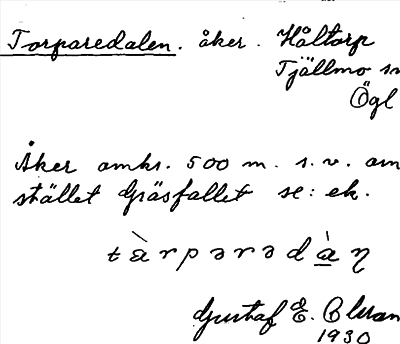 Torparedalen. åker. Håltorp
Tjällmo sn
Ögl
Åker omkr. 500 m. s.v. om
stället Gräsfallet se: ek.
tàrparadàn
Gustaf E.
1930